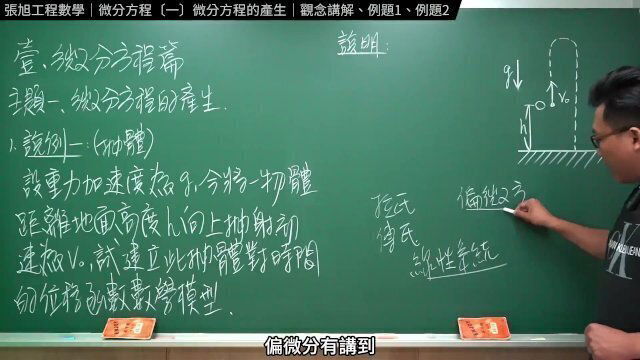 張旭工程數學｜微分方程〔一〕微分方程的產生｜觀念講解、例題1、例題2
壹、微分方程篇
主題一、微分方程的產生.
1. 說例一:(拋體)
設重力加速度為g,今將一物體
距離地面高度h向上拋射初
速為v₀,試建立此拋體對時間
的位移函數數學模型.
說明:
g
v₀
h
拉氏
傅氏
線性系統
偏微分方
偏微分有講到